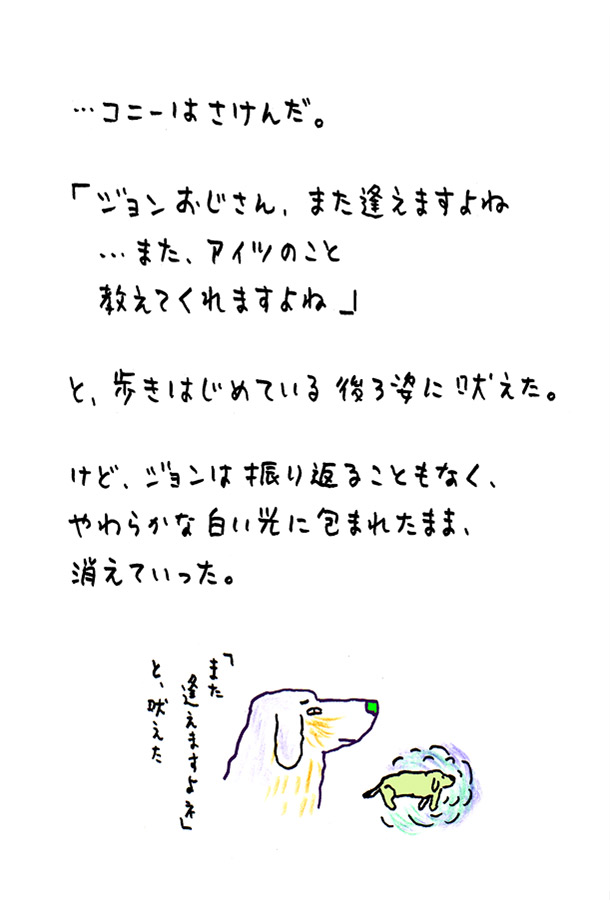 …コニーはさけんだ。
「ジョンおじさん、また逢えますよね
…また、アイツのこと
教えてくれますよね」
と、歩きはじめている後ろ姿に吠えた。
けど、ジョンは振り返ることもなく、
やわらかな白い光に包まれたまま、
消えていった。
「また
逢えますよネ」
と、吠えた